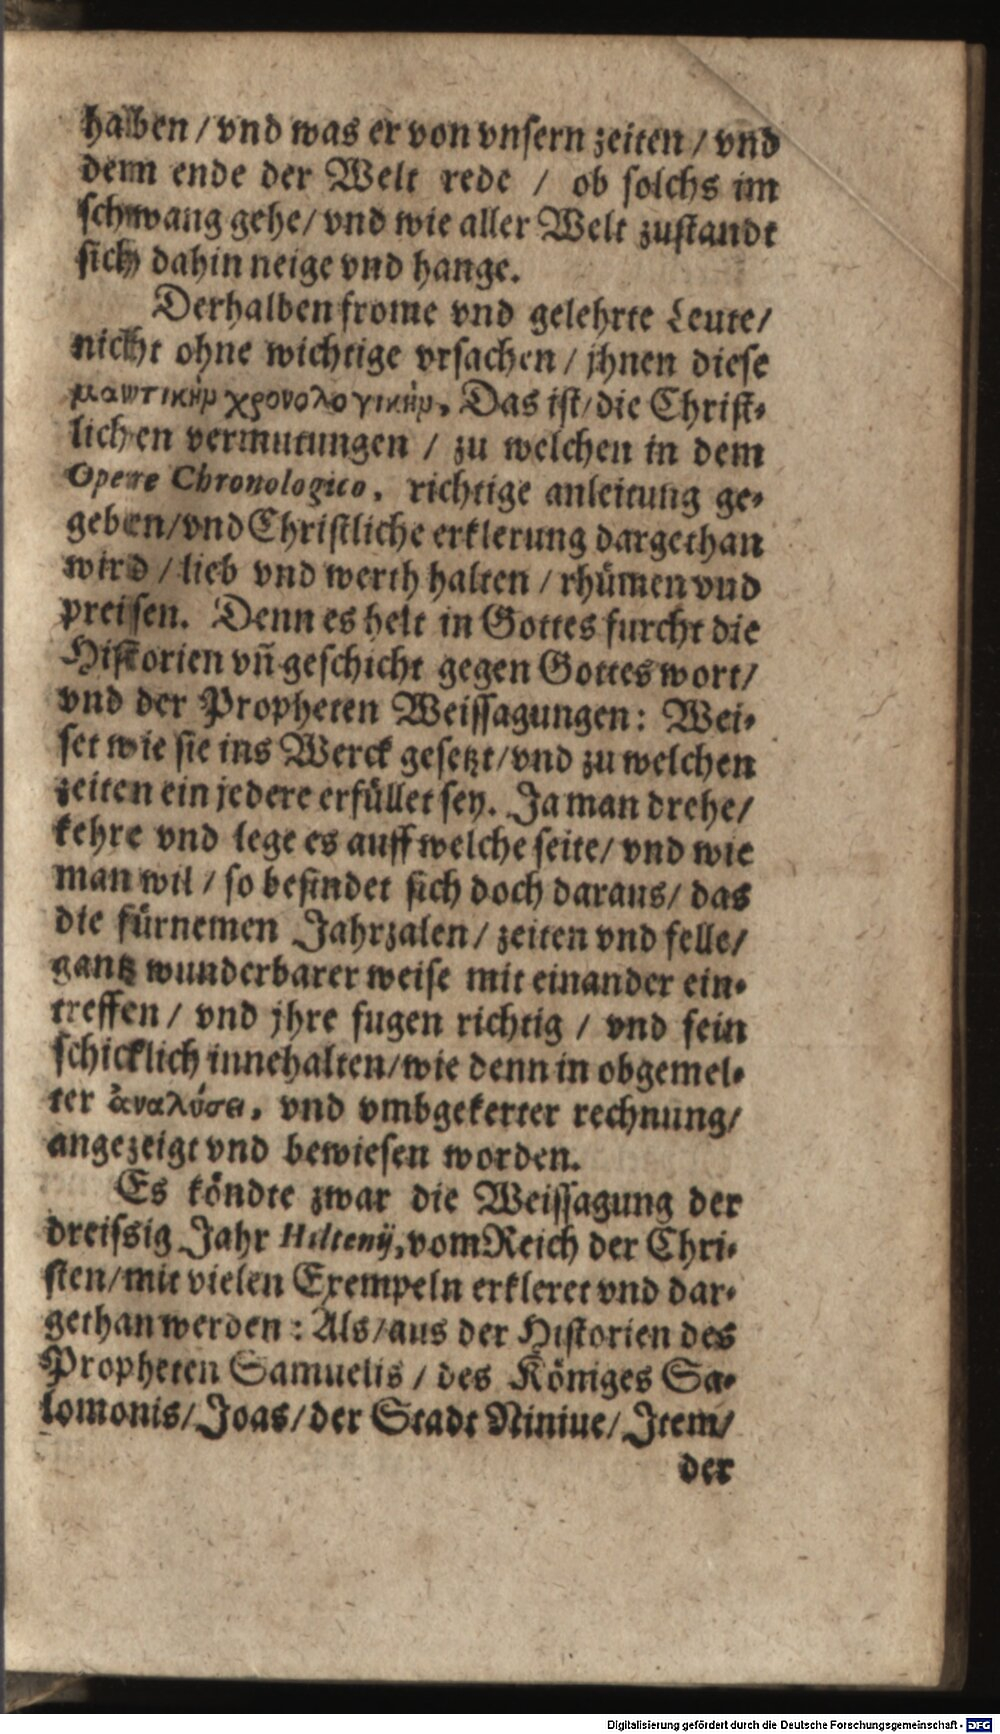 halben / vnd was er von vnsern zeiten / vnd
dem ende der Welt rede / ob solchs im
schwang gehe / vnd wie aller Welt zustandt
sich dahin neige vnd hange.
Derhalben frome vnd gelehrte Leute /
nicht ohne wichtige vrsachen / jhnen diese
μαντικὴν χρονολογικὴν, Das ist / die Christ-
lichen vermutungen / zu welchen in dem
Opere Chronologico, richtige anleitung ge-
geben / vnd Christliche erklerung dargethan
wird / lieb vnd werth halten / rhümen vnd
preisen. Denn es helt in Gottes furcht die
Historien vñ geschicht gegen Gottes wort /
vnd der Propheten Weissagungen: Wei-
set wie sie ins Werck gesetzt / vnd zu welchen
zeiten ein jedere erfüllet sey. Ja man drehe /
kehre vnd lege es auff welche seite / vnd wie
man wil / so befindet sich doch daraus / das
die fürnemen Jahrzalen / zeiten vnd felle /
gantz wunderbarer weise mit einander ein-
treffen / vnd jhre fugen richtig / vnd fein
schicklich innehalten / wie denn in obgemel-
ter ἀναλύσει, vnd vmbgekerter rechnung /
angezeigt vnd bewiesen worden.
Es köndte zwar die Weissagung der
dreissig Jahr Hiltenij, vom Reich der Chri-
sten / mit vielen Exempeln erkleret vnd dar-
gethan werden: Als / aus der Historien des
Propheten Samuelis / des Königes Sa-
lomonis / Joas / der Stadt Niniue / Item /
der
Digitalisierung gefördert durch die Deutsche Forschungsgemeinschaft - DFG